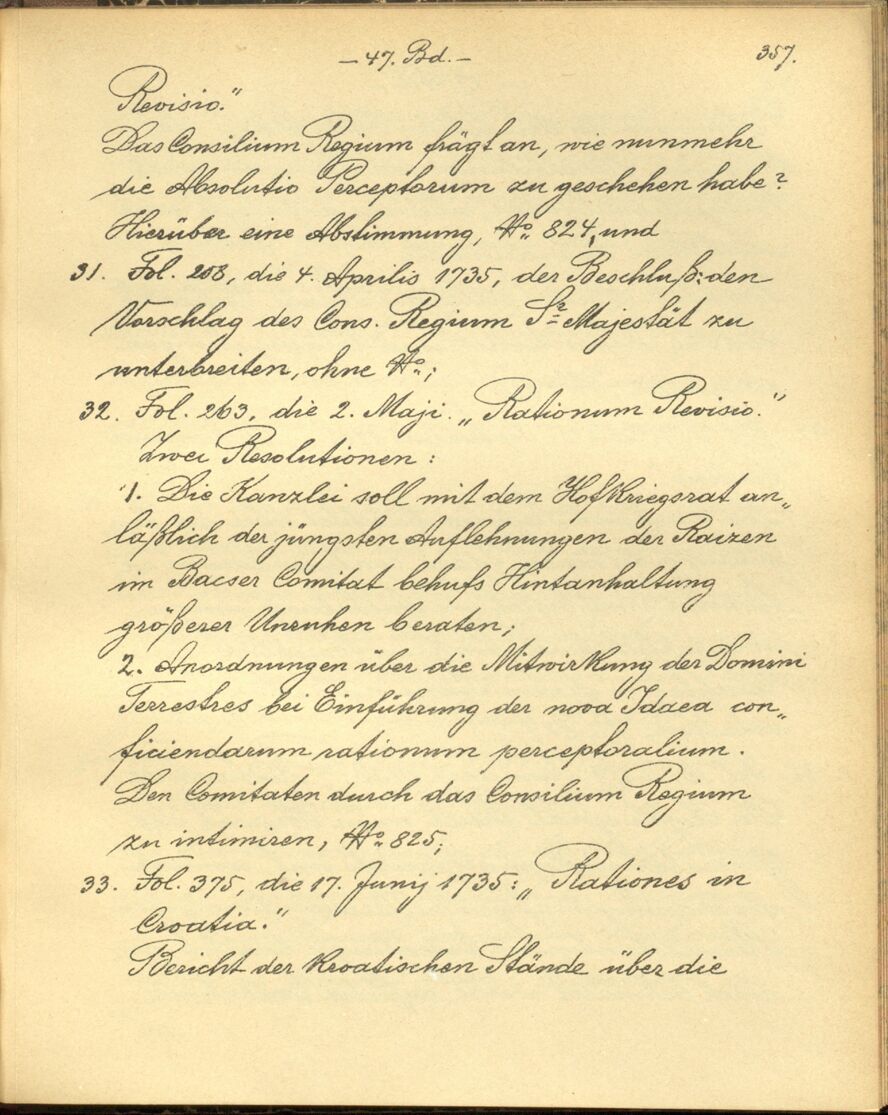 — 47. Bd. —
357.
Revisio."
Das Consilium Regium frägt an, wie nunmehr
die Absolutio Perceptorum zu geschehen habe?
Hierüber eine Abstimmung, No. 824, und
31. Fol. 208, die 4. Aprilis 1735, der Beschluß: den
Vorschlag des Cons. Regium Sr. Majestät zu
unterbreiten, ohne No.;
32. Fol. 263, die 2. Maji. „Rationum Revisio."
Zwei Resolutionen:
1. Die Kanzlei soll mit dem Hofkriegsrat an„
läßlich der jüngsten Auflehnungen der Raizen
im Bacser Comitat behufs Hintanhaltung
größerer Unruhen beraten;
2. Anordnungen über die Mitwirkung der Domini
Terrestres bei Einführung der nova Idaea con„
ficiendarum rationum perceptoralium.
Den Comitaten durch das Consilium Regium
zu intimiren, No. 825;
33. Fol. 375, die 17. Junij 1735: „Rationes in
Croatia."
Bericht der kroatischen Stände über die